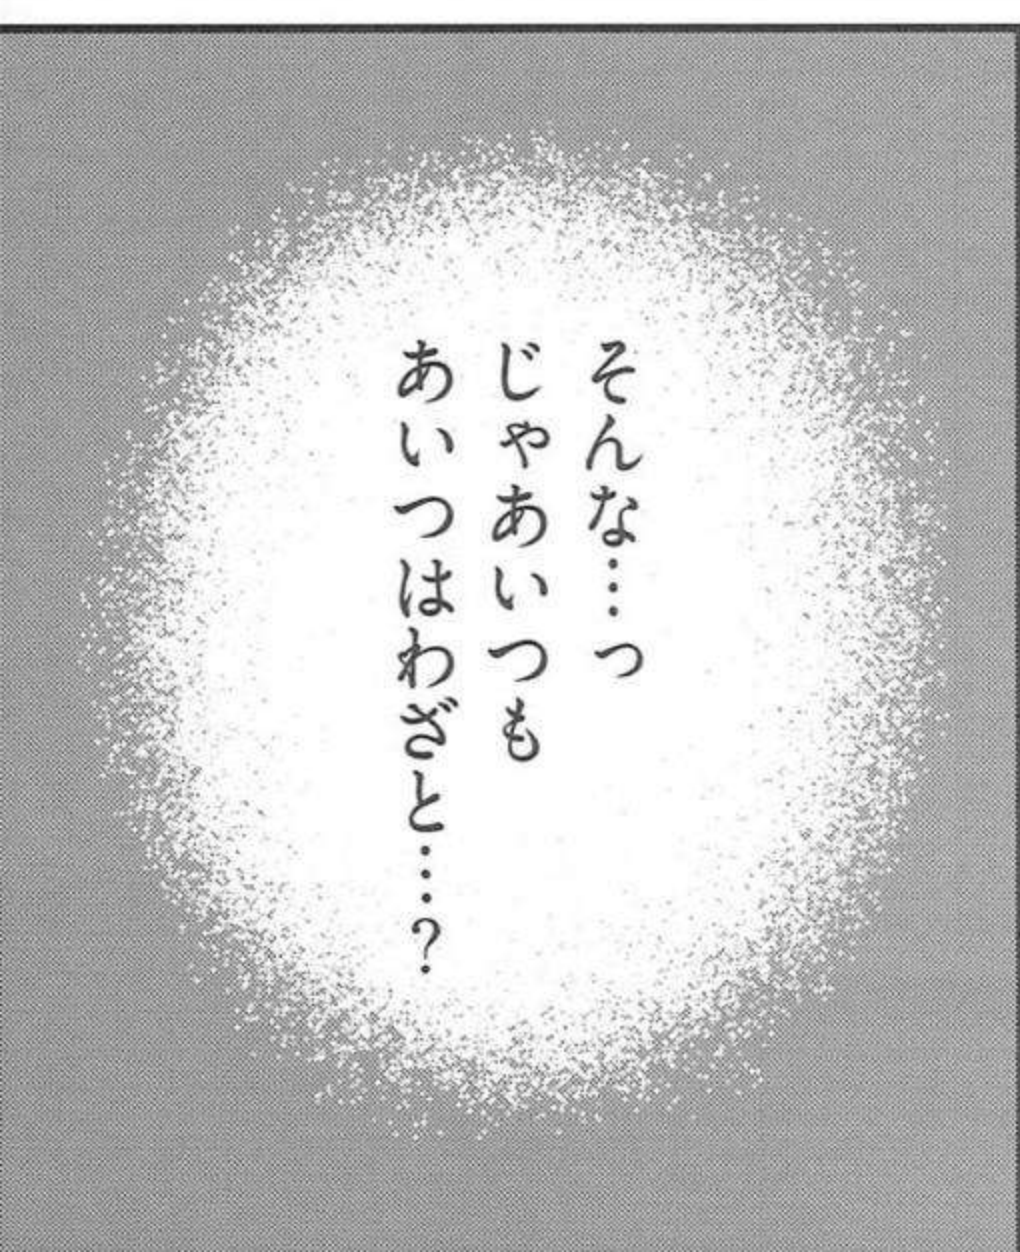 そんな…っ
じゃあいつも
あいつはわざと…?